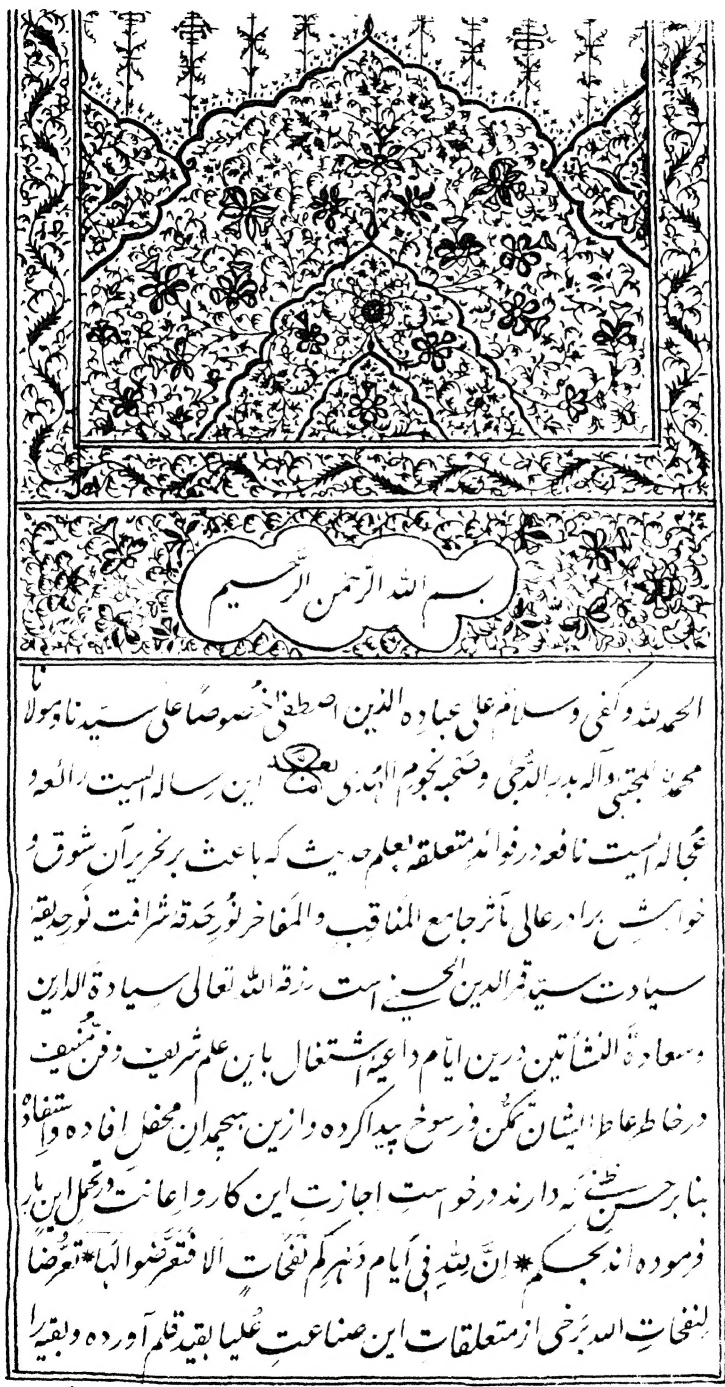 بسم الله الرّحمن الرّحیم
الحمد لله وکفی وسلام علی عباده الذین اصطفی خصوصًا علی سیّدنا ومولانا
محمّد المجتبی وآله بدر الدُّجی وصَحبه نجوم الهُدی اما بعد این رساله ایست رائعه و
عُجاله ایست نافعه در فوائدِ متعلقه بعلم حدیث که باعث بر تحریر آن شوق و
خواهشِ برادر عالی مآثر جامع المَناقب والمَفاخر نورِ حَدقهٔ شرافت نَورِ حدیقهٔ
سیادت سیّد قمر الدین الحسینی است رزقه الله تعالی سِیادة الدارین
وسعادة النشأتین درین ایّام داعیهٔ اشتغال باین علم شریف وفنّ مُنیف
در خاطر عاطر ایشان تمکّن و رسوخ پیدا کرده و ازین هیچمدان محفلِ افاده و استفاده
بنا بر حسن ظنّی که دارند درخواستِ اجازتِ این کار و اِعانت در تحمل این بار
فرموده اند بحکم * انّ لِلّهِ فی اَیام دَهرِکم نَفَحاتٍ اَلا فَتَعَرَّضوا لَها * تعرُّضًا
لِنفحاتِ الله برخی از متعلقاتِ این صناعتِ عُلیا بقید قلم آورده و بقیه را